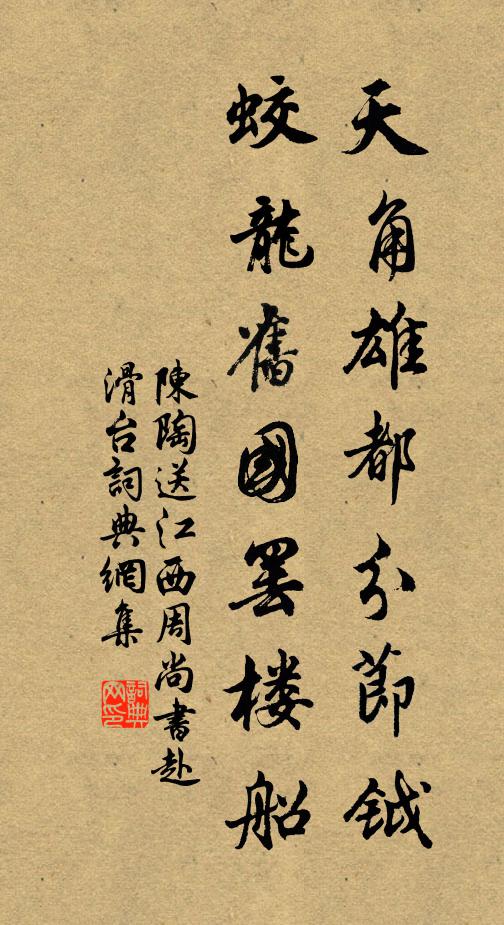 天角雄都分節鉞
蛟龍舊國罢楼船
陳陶送江西周尚書赴
滑台詞典網集
詞典
网印